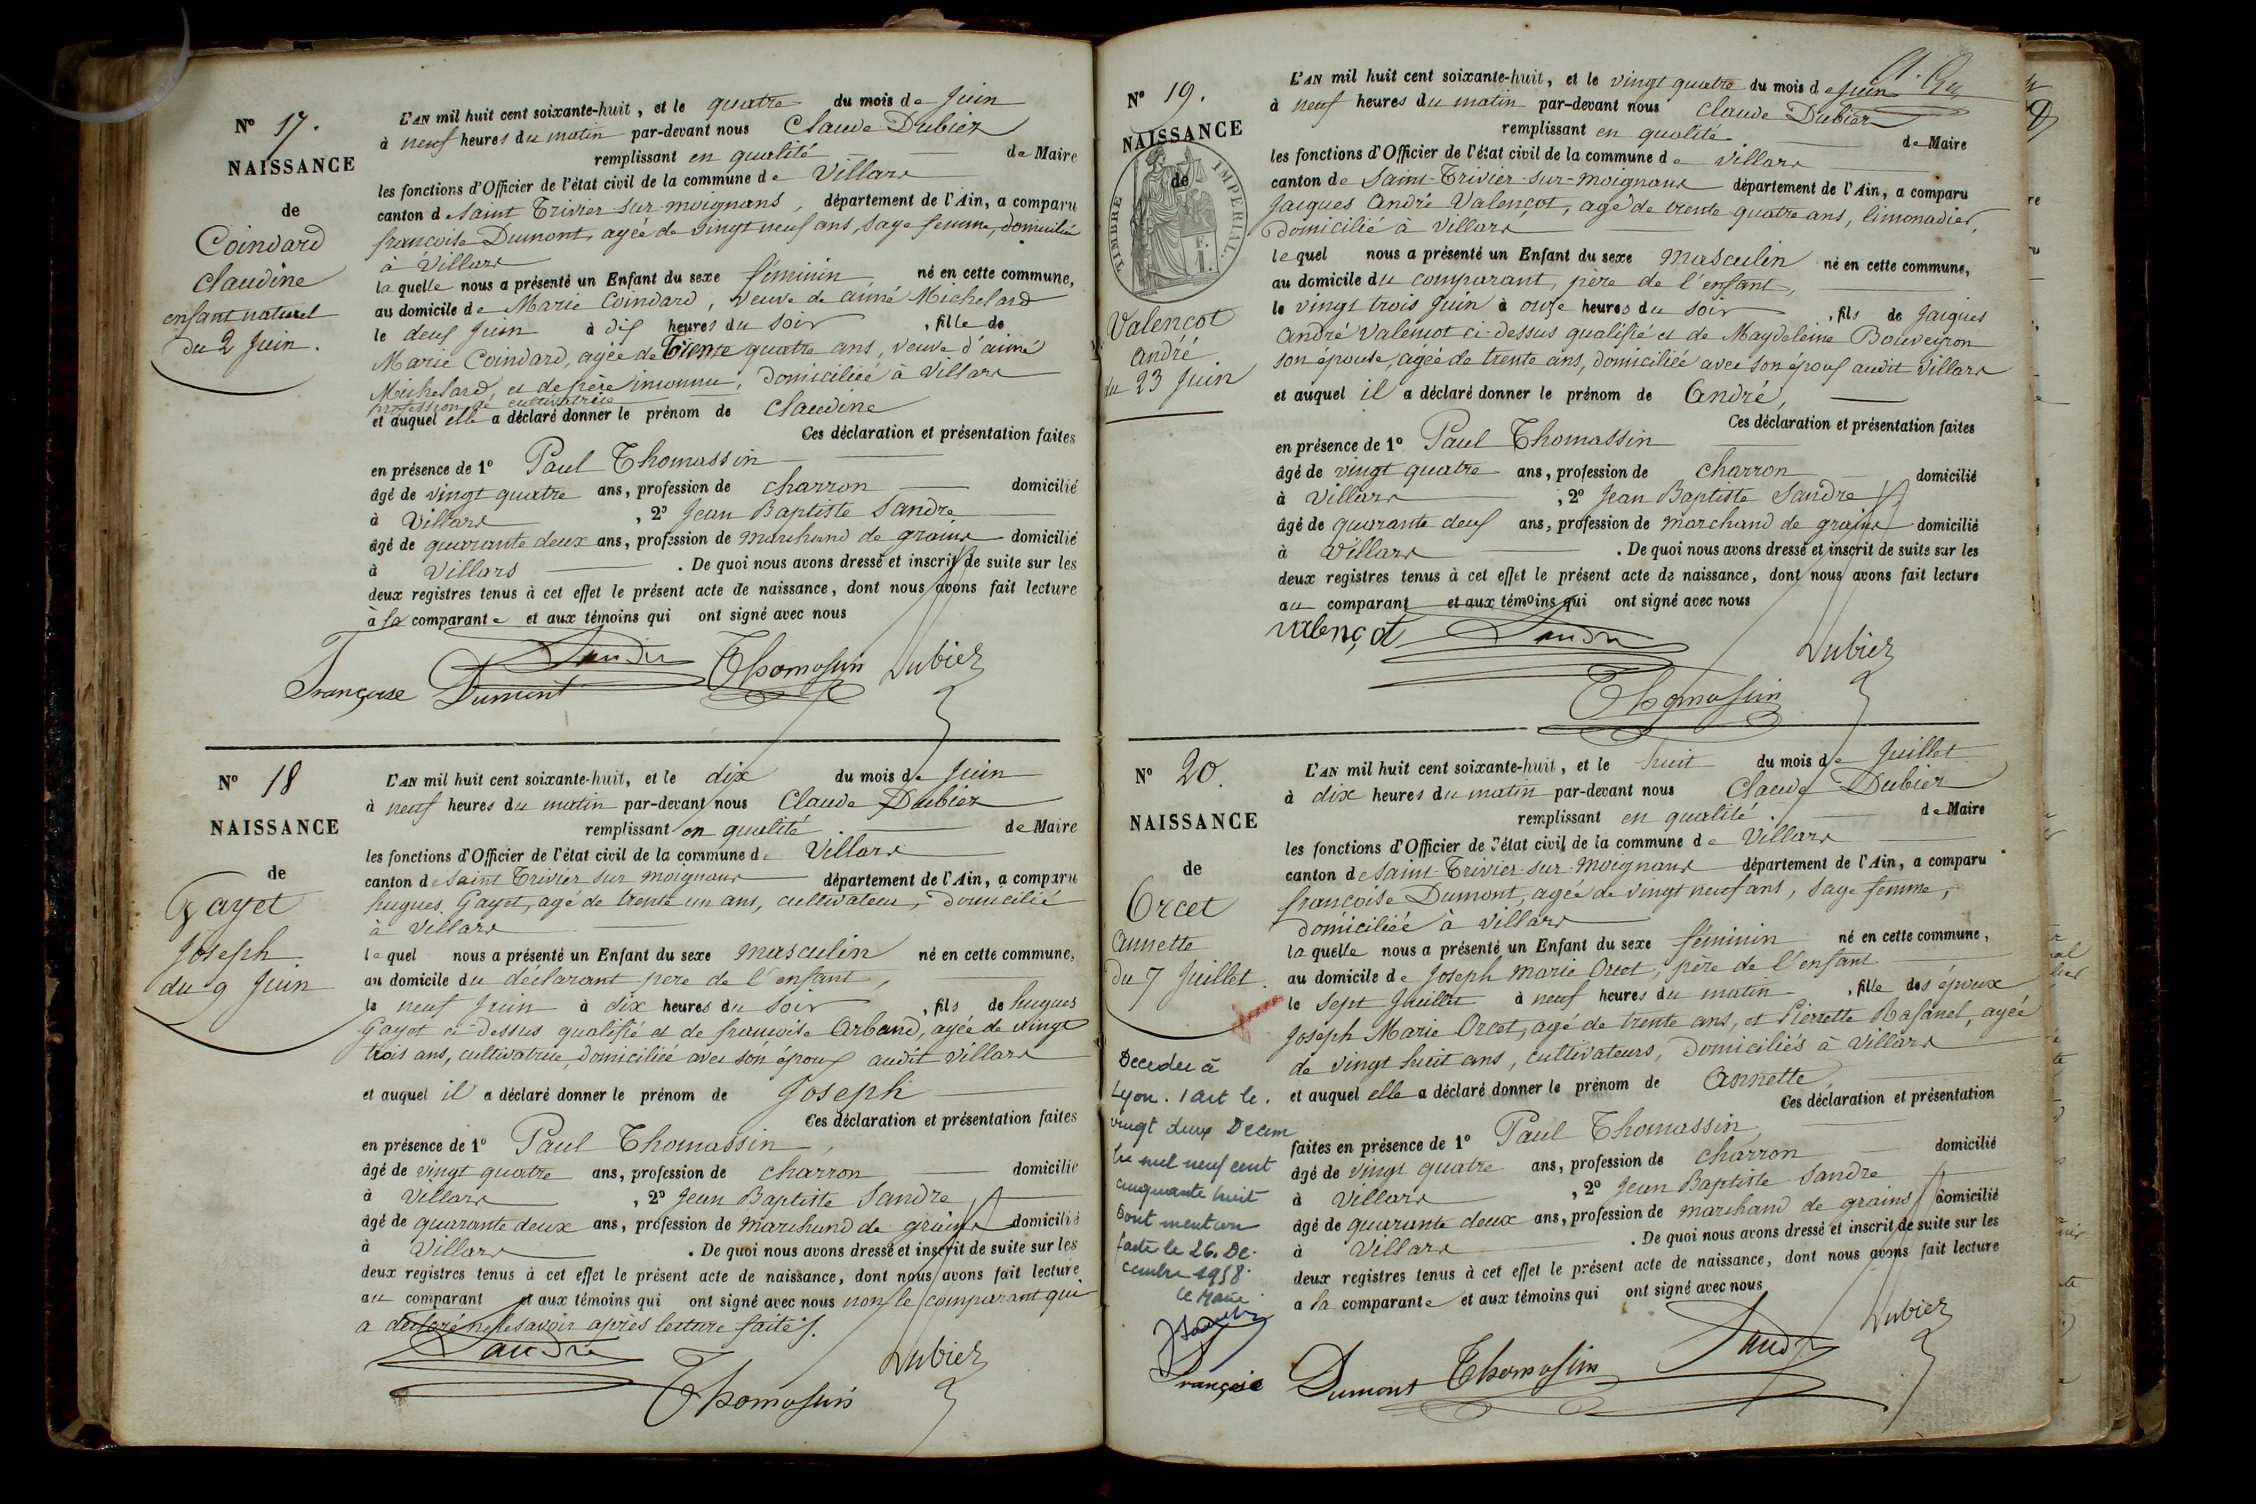 N° 17.
NAISSANCE
de
Coindard
Claudine
enfant naturel
du 2 Juin.
L'AN mil huit cent soixante-huit, et le quatre du mois de Juin
à neuf heures du matin par-devant nous Claude Dubiez
remplissant en qualité de Maire
les fonctions d'Officier de l'état civil de la commune de Villars
canton de Saint Trivier-sur-moignans, département de l'Ain, a comparu
françoise Dumont, agée de vingt neuf ans, sage femme, domiciliée
à Villars
laquelle nous a présenté un Enfant du sexe féminin, né en cette commune,
au domicile de Marie Coindard, veuve de aimé Michelard
le deux Juin à dix heures du soir, fille de
Marie Coindard, agée de Trente quatre ans, veuve d'aimé
Michelard, et de père inconnu, domiciliée à Villars
profession de cultivatrice
et auquel elle a déclaré donner le prénom de Claudine
Ces déclaration et présentation faites
en présence de 1° Paul Thomassin
âgé de vingt quatre ans, profession de charron domicilié
à Villars, 2° Jean Baptiste Sandre
âgé de quarante deux ans, profession de marchand de grains domicilié
à Villars. De quoi nous avons dressé et inscrit de suite sur les
deux registres tenus à cet effet le présent acte de naissance, dont nous avons fait lecture
à la comparante et aux témoins qui ont signé avec nous
Sandre Thomassin Dubiez
Françoise Dumont
N° 18
NAISSANCE
de
Gayet
Joseph
du 9 Juin
L'AN mil huit cent soixante-huit, et le dix du mois de Juin
à neuf heures du matin par-devant nous Claude Dubiez
remplissant en qualité de Maire
les fonctions d'Officier de l'état civil de la commune de Villars
canton de Saint Trivier sur moignans département de l'Ain, a comparu
hugues Gayet, agé de trente un ans, cultivateur, domicilié
à Villars
lequel nous a présenté un Enfant du sexe masculin né en cette commune,
au domicile du déclarant pere de l'enfant,
le neuf Juin à dix heures du soir, fils de hugues
Gayet ci-dessus qualifié et de françoise Arband, agée de vingt
trois ans, cultivatrice, domiciliée avec son époux audit Villars
et auquel il a déclaré donner le prénom de Joseph
Ces déclaration et présentation faites
en présence de 1° Paul Thomassin,
âgé de vingt quatre ans, profession de charron domicilié
à Villars, 2° Jean Baptiste Sandre,
âgé de quarante deux ans, profession de marchand de grains domicilié
à Villars. De quoi nous avons dressé et inscrit de suite sur les
deux registres tenus à cet effet le présent acte de naissance, dont nous avons fait lecture
au comparant et aux témoins qui ont signé avec nous non le comparant qui
a déclaré ne le savoir après lecture faite.
Sandre Dubiez
Thomassin
N° 19.
NAISSANCE
de
TIMBRE IMPÉRIAL
Valençot
André
du 23 Juin
L'AN mil huit cent soixante-huit, et le vingt quatre du mois de Juin
à neuf heures du matin par-devant nous Claude Dubiez
remplissant en qualité de Maire
les fonctions d'Officier de l'état civil de la commune de Villars
canton de Saint-Trivier-sur-moignans département de l'Ain, a comparu
Jacques André Valençot, agé de trente quatre ans, limonadier,
domicilié à Villars
lequel nous a présenté un Enfant du sexe masculin né en cette commune,
au domicile du comparant, père de l'enfant,
le vingt trois Juin à onze heures du soir, fils de Jaiques
André Valençot ci-dessus qualifié et de Magdeleine Bouveyron
son épouse, agée de trente ans, domiciliée avec son époux audit Villars
et auquel il a déclaré donner le prénom de André,
Ces déclaration et présentation faites
en présence de 1° Paul Thomassin
âgé de vingt quatre ans, profession de charron domicilié
à Villars, 2° Jean Baptiste Sandre
âgé de quarante deux ans, profession de marchand de grains domicilié
à Villars. De quoi nous avons dressé et inscrit de suite sur les
deux registres tenus à cet effet le présent acte de naissance, dont nous avons fait lecture
au comparant et aux témoins qui ont signé avec nous
valençot Sandre Dubiez
Thomassin
N° 20.
NAISSANCE
de
Orcet
Annette
Du 7 Juillet.
Decedee à
Lyon. 1 art le.
vingt deux Decem
bre mil neuf cent
cinquante huit
Dont mention
faite le 26. De-
cembre 1958.
le Maire
L'AN mil huit cent soixante-huit, et le huit du mois de Juillet
à dix heures du matin par-devant nous Claude Dubiez
remplissant en qualité de Maire
les fonctions d'Officier de l'état civil de la commune de Villars
canton de Saint-Trivier-sur-moignans département de l'Ain, a comparu
françoise Dumont, agée de vingt neuf ans, sage femme,
domiciliée à Villars
laquelle nous a présenté un Enfant du sexe féminin né en cette commune,
au domicile de Joseph Marie Orcet, père de l'enfant
le sept Juillet à neuf heures du matin, fille des époux
Joseph Marie Orcet, agé de trente ans, et Pierrette Rafanel, agée
de vingt huit ans, cultivateurs, domiciliés à Villars
et auquel elle a déclaré donner le prénom de Annette,
Ces déclaration et présentation
faites en présence de 1° Paul Thomassin,
âgé de vingt quatre ans, profession de charron domicilié
à Villars, 2° Jean Baptiste Sandre
âgé de quarante deux ans, profession de marchand de grains domicilié
à Villars. De quoi nous avons dressé et inscrit de suite sur les
deux registres tenus à cet effet le présent acte de naissance, dont nous avons fait lecture
a la comparante et aux témoins qui ont signé avec nous
Françoise Dumont Thomassin Sandre Dubiez